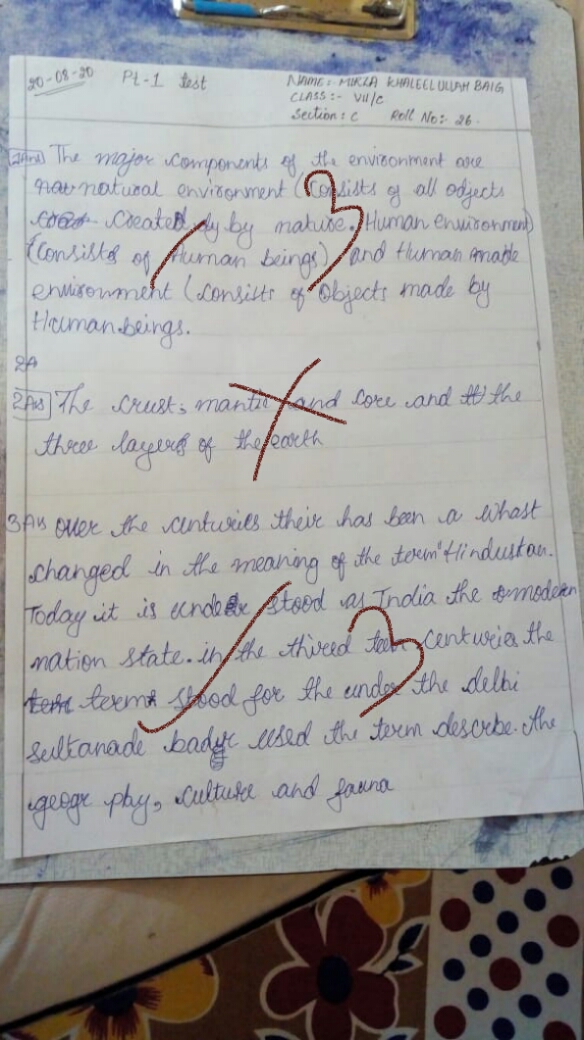 20-08-20 Pt-1 test NAME: MIRZA KHALEELULLAH BAIG
CLASS:- VII/C
Section: C Roll No:- 26.
1Ans The major components of the environment are
natural environment (Consists of all objects
created by by nature. Human environment)
(consists of Human beings) and Human made
environment (consists of objects made by
Human beings.
3
2A
2Ans The crust, mantle and core and the
three layers of the earth
3Ans over the centuries their has been a whast
changed in the meaning of the term "Hindustan.
Today it is under stood as India the modern
nation state. in the thired centuries the
term stood for the under the delhi
3
sultanade used the term describe. the
geogr phy, culture and fauna